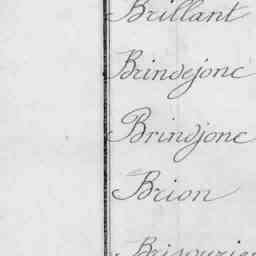 Brillant
Brindejonc
Brindjonc
Brion